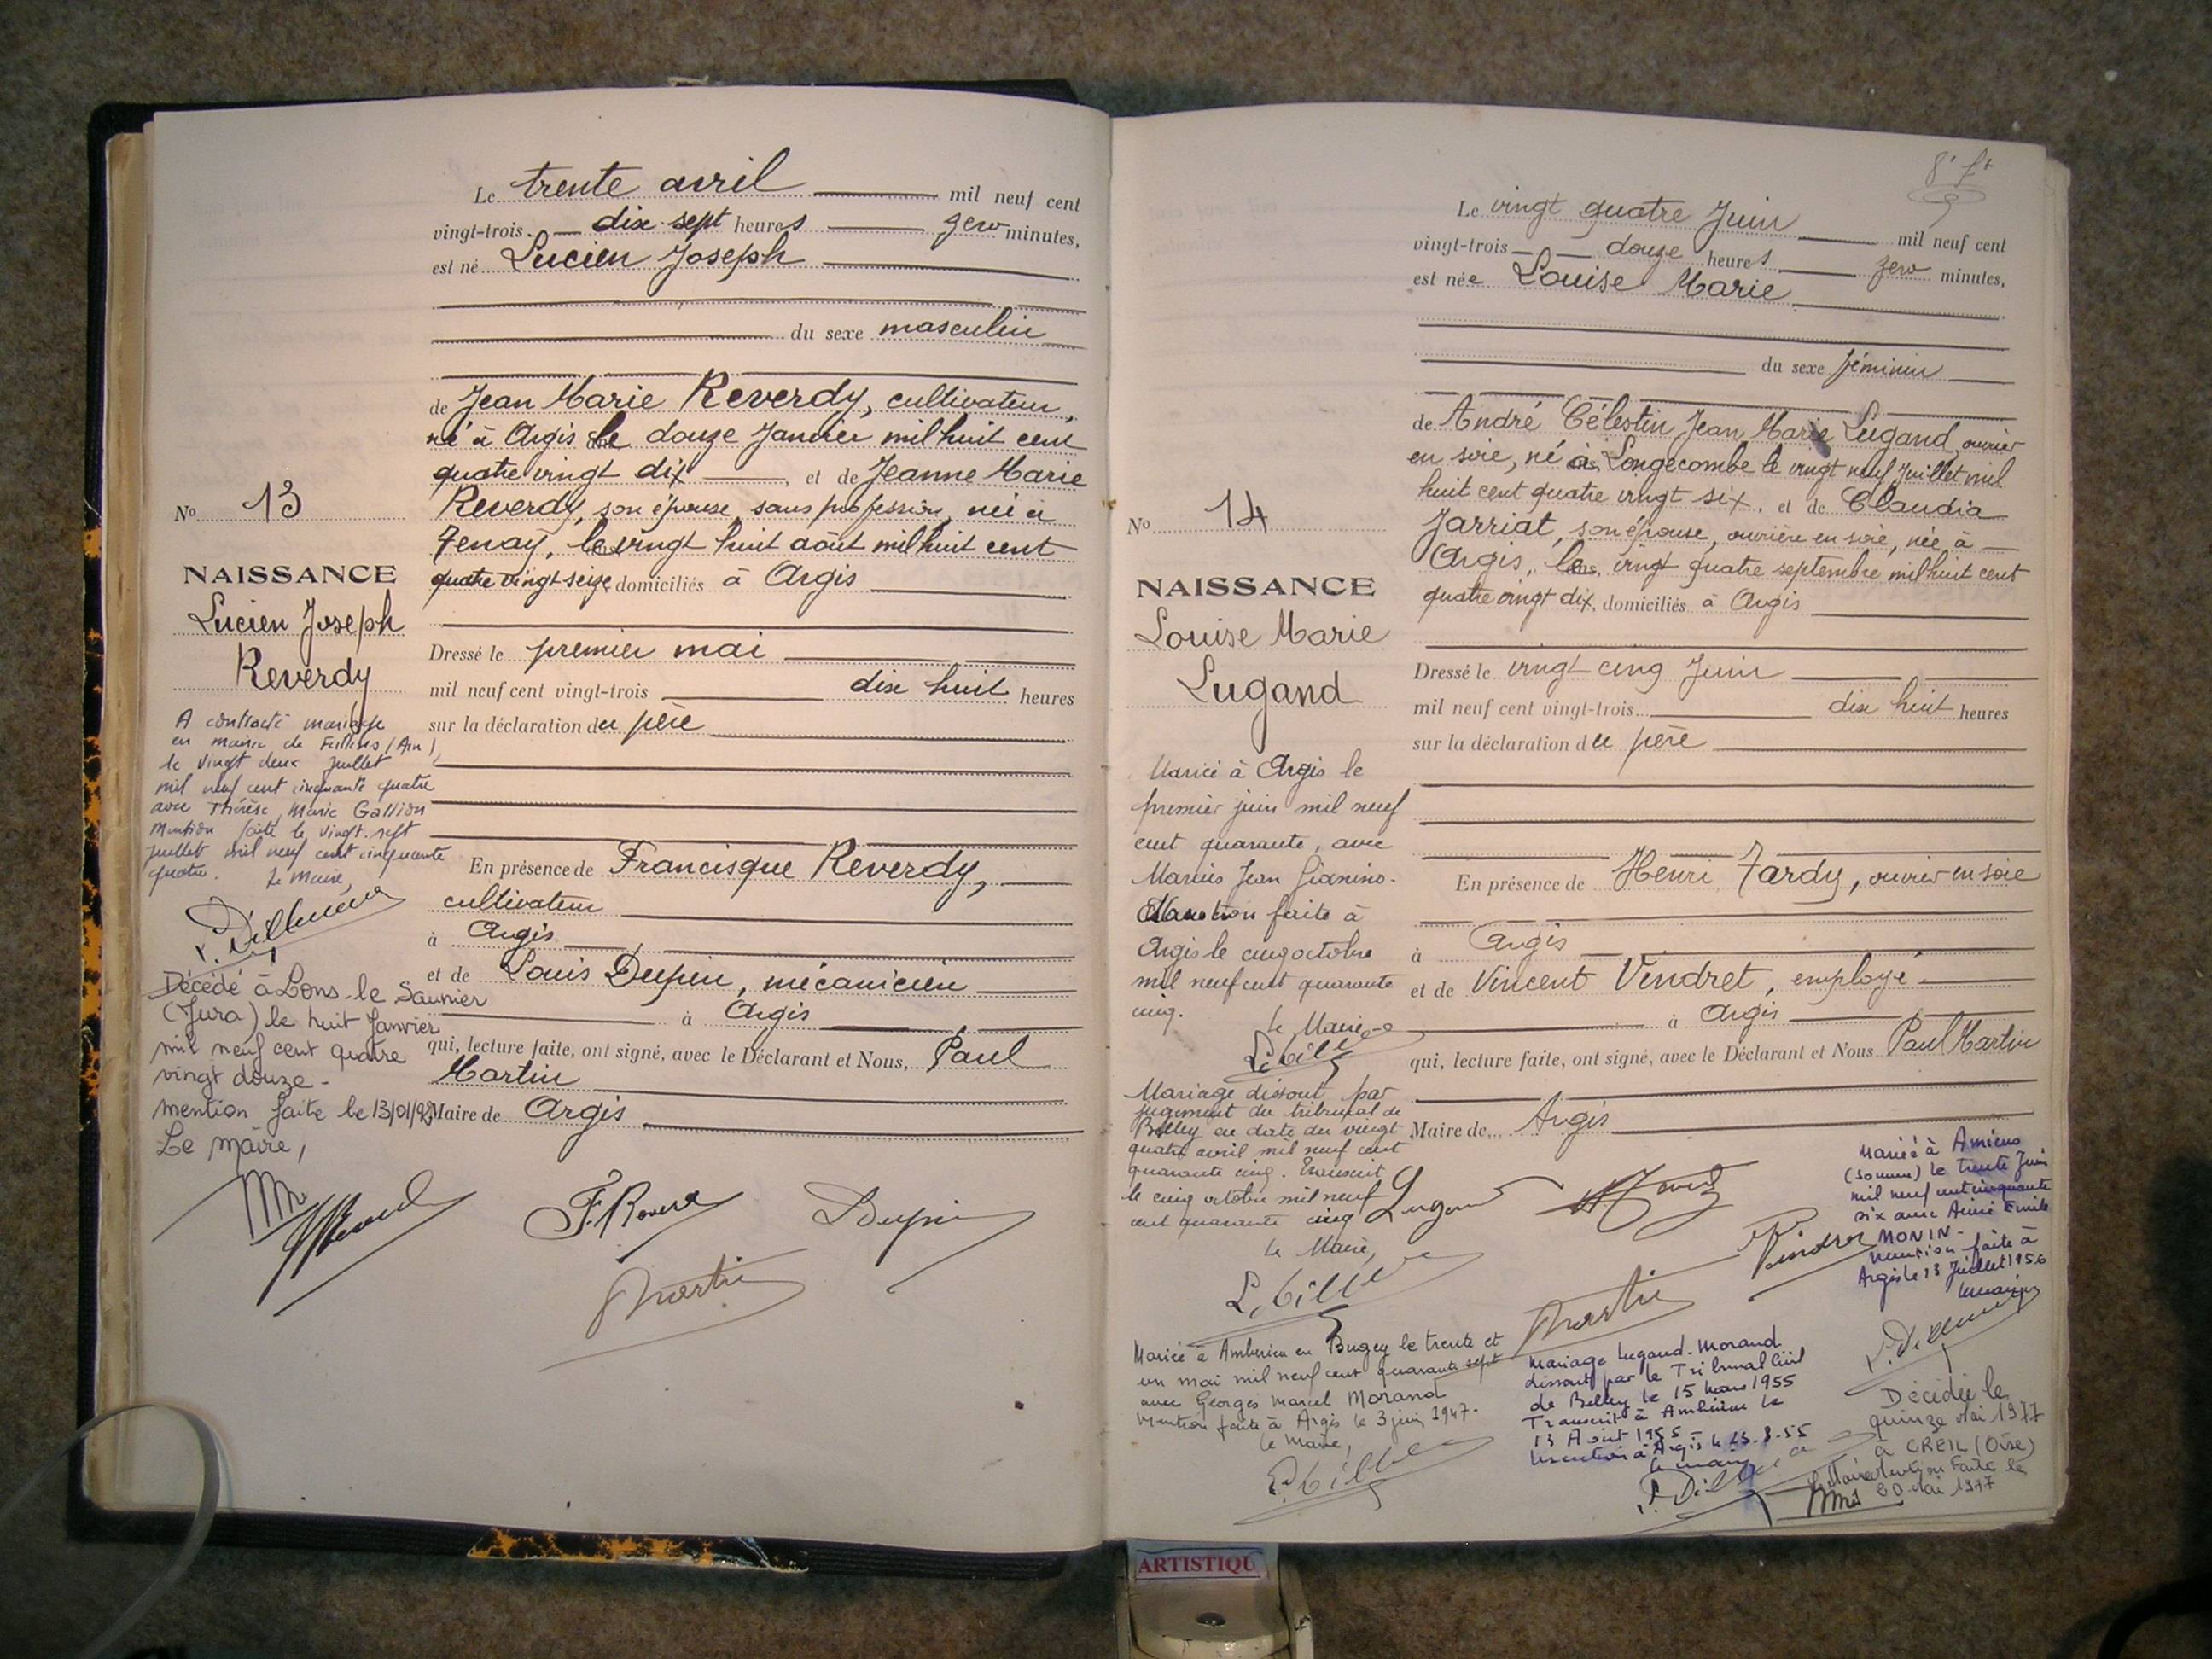 Le trente avril mil neuf cent
vingt-trois dix sept heures zero minutes,
est né Lucien Joseph
du sexe masculin
de Jean Marie Reverdy, cultivateur,
né à Argis le douze Janvier mil huit cent
quatre vingt dix, et de Jeanne Marie
Reverdy, son épouse, sans profession, née à
Tenay, le vingt huit août mil huit cent
quatre vingt seize domiciliés à Argis
Dressé le premier mai
mil neuf cent vingt-trois dix huit heures
sur la déclaration du père
En présence de Francisque Reverdy,
cultivateur
à Argis
et de Louis Dupin, mécanicien
à Argis
qui, lecture faite, ont signé, avec le Déclarant et Nous, Paul
Martin
Maire de Argis
No 13
NAISSANCE
Lucien Joseph
Reverdy
A contracté mariage
en mairie de Feillens (Ain)
le vingt deux juillet
mil neuf cent cinquante quatre
avec Thérèse Marie Gallion
Mention faite le vingt-sept
juillet mil neuf cent cinquante
quatre. Le Maire,
Décédé à Lons-le Saunier
(Jura) le huit Janvier
mil neuf cent quatre
vingt douze -
mention faite le 13/01/92
Le maire,
F. Rever
Dupin
Martin
8e ft
Le vingt quatre Juin mil neuf cent
vingt-trois douze heures zero minutes,
est née Louise Marie
du sexe féminin
de André Célestin Jean Marie Lugand, ouvrier
en soie, né à Longecombe le vingt neuf Juillet mil
huit cent quatre vingt six, et de Claudia
Jarriat, son épouse, ouvrière en soie, née à
Argis, le vingt quatre septembre mil huit cent
quatre vingt dix, domiciliés à Argis
Dressé le vingt cinq Juin
mil neuf cent vingt-trois dix huit heures
sur la déclaration du père
En présence de Henri Tardy, ouvrier en soie
à Argis
et de Vincent Vendret, employé
à Argis
qui, lecture faite, ont signé, avec le Déclarant et Nous Paul Martin
Maire de Argis
No 14
NAISSANCE
Louise Marie
Lugand
Mariée à Argis le
premier juin mil neuf
cent quarante, avec
Marius Jean Gianino.
Mention faite à
Argis le cinq octobre
mil neuf cent quarante
cinq.
Le Maire
Mariage dissout par
jugement du tribunal de
Belley en date du vingt
quatre avril mil neuf cent
quarante cinq. Transcrit
le cinq octobre mil neuf
cent quarante cinq
Le Maire,
Mariée à Ambérieu en Bugey le trente et
un mai mil neuf cent quarante sept
avec Georges Marcel Morand
Mention faite à Argis le 3 juin 1947.
Le Maire,
Lugan
Vindret
Martin
Mariage Lugand-Morand
dissout par le Tribunal Civil
de Belley le 15 Mars 1955
Transcrit à Ambérieu le
13 Août 1955 -
Mention à Argis le 23.8.55
Le maire
Mariée à Amiens
(Somme) le trente Juin
mil neuf cent cinquante
six avec Aimé Emile
MONIN -
Mention faite à
Argis le 13 Juillet 1956
Le maire
Décédée le
quinze Mai 1977
à CREIL (Oise)
Mention Faite le
20 Mai 1977
ARTISTIQU